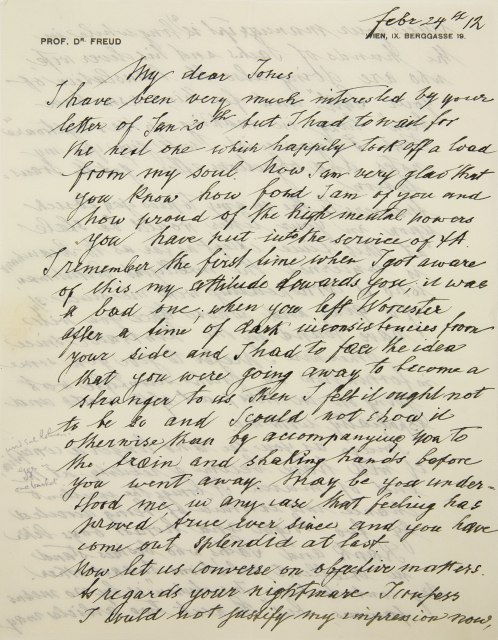 febr 24th 12
PROF. DR. FREUD
WIEN, IX. BERGGASSE 19.
My dear Jones
I have been very much interested by your
letter of Jan 20th but I had to wait for
the next one which happily took off a load
from my soul. Now I am very glad that
you know how fond I am of you and
how proud of the high mental powers
you have put into the service of ΨA.
I remember the first time when I got aware
of this my attitude towards you, it was
a bad one; when you left Worcester
after a time of dark inconsistencies from
your side and I had to face the idea
that you were going away to become a
stranger to us. Then I felt it ought not
to be so and I could not show it
otherwise than by accompanying you to
the train and shaking hands before
you went away. May be you under-
stood me, in any case that feeling has
proved true ever since and you have
come out splendid at last.
Now let us converse on objective matters.
As regards your nightmare I confess
I could not justify my impression now,